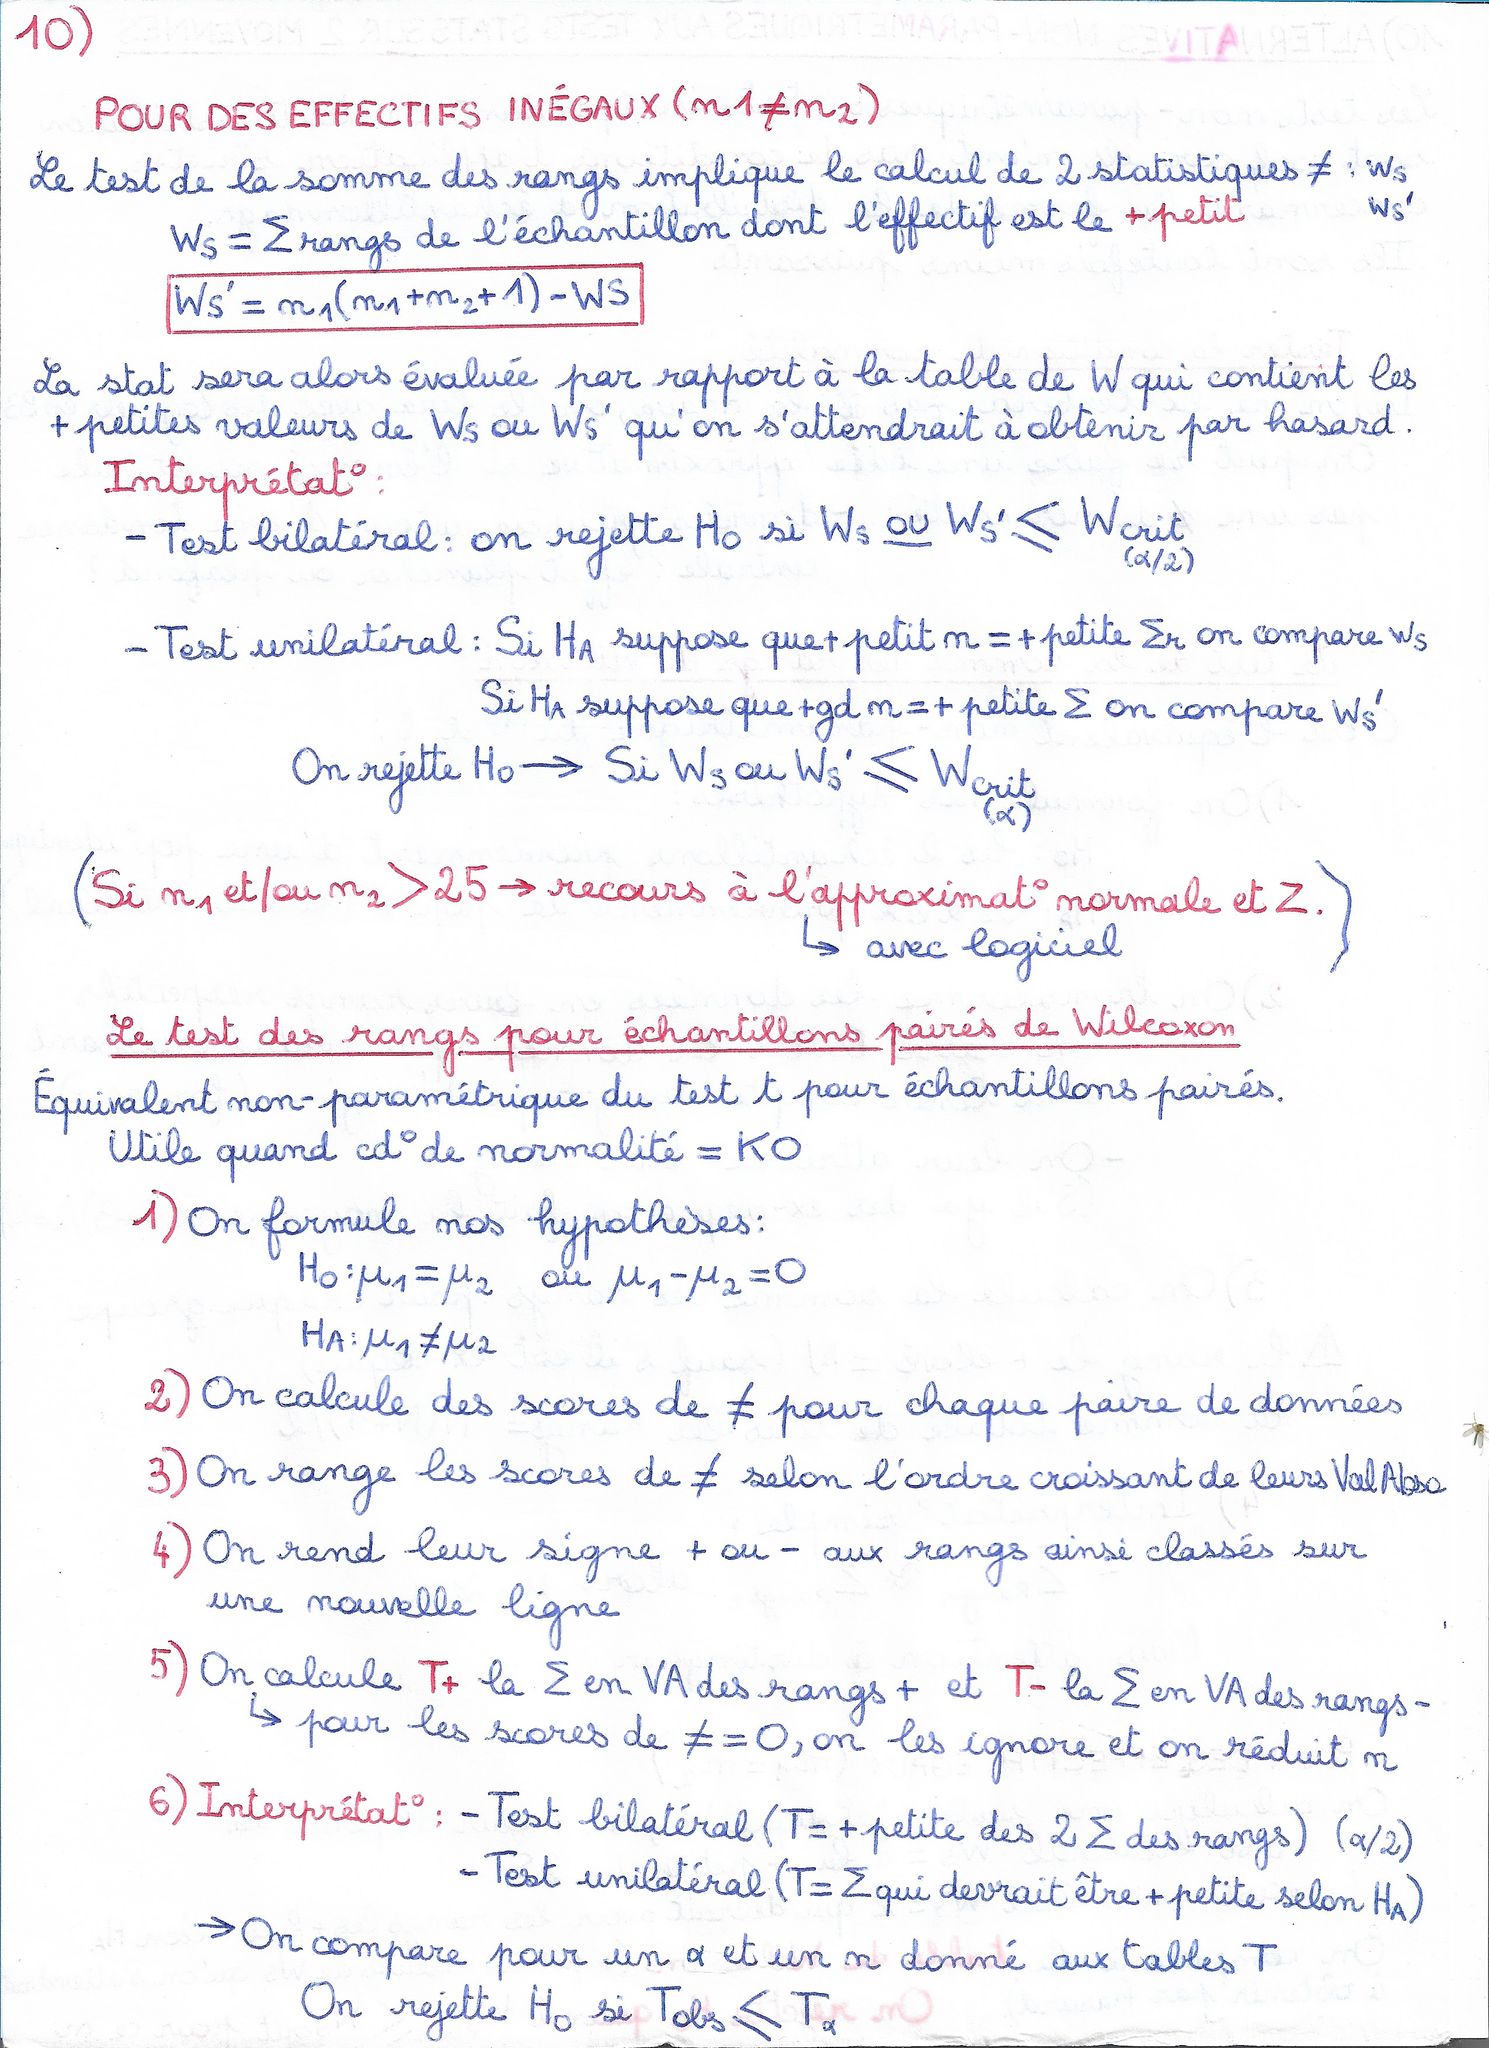 10)
POUR DES EFFECTIFS INÉGAUX (n1≠n2)
Le test de la somme des rangs implique le calcul de 2 statistiques ≠ : Ws
Ws'
Ws = Σ rangs de l'échantillon dont l'effectif est le + petit
Ws' = n1(n1+n2+1) - WS
La stat sera alors évaluée par rapport à la table de W qui contient les
+ petites valeurs de Ws ou Ws' qu'on s'attendrait à obtenir par hasard.
Interprétat° :
- Test bilatéral : on rejette H0 si Ws ou Ws' ≤ Wcrit
(α/2)
- Test unilatéral : Si HA suppose que + petit n = + petite Σr on compare Ws
Si HA suppose que + gd n = + petite Σ on compare Ws'
On rejette H0 → Si Ws ou Ws' ≤ Wcrit
(α)
(Si n1 et/ou n2 > 25 → recours à l'approximat° normale et Z.)
↳ avec logiciel
Le test des rangs pour échantillons pairés de Wilcoxon
Équivalent non-paramétrique du test t pour échantillons pairés.
Utile quand cd° de normalité = KO
1) On formule nos hypothèses :
H0 : μ1 = μ2 ou μ1 - μ2 = 0
HA : μ1 ≠ μ2
2) On calcule des scores de ≠ pour chaque paire de données
3) On range les scores de ≠ selon l'ordre croissant de leurs Val Abso
4) On rend leur signe + ou - aux rangs ainsi classés sur
une nouvelle ligne
5) On calcule T+ la Σ en VA des rangs + et T- la Σ en VA des rangs -
↳ pour les scores de ≠ = 0, on les ignore et on réduit n
6) Interprétat° : - Test bilatéral (T = + petite des 2 Σ des rangs) (α/2)
- Test unilatéral (T = Σ qui devrait être + petite selon HA)
→ On compare pour un α et un n donné aux tables T
On rejette H0 si Tobs ≤ Tα